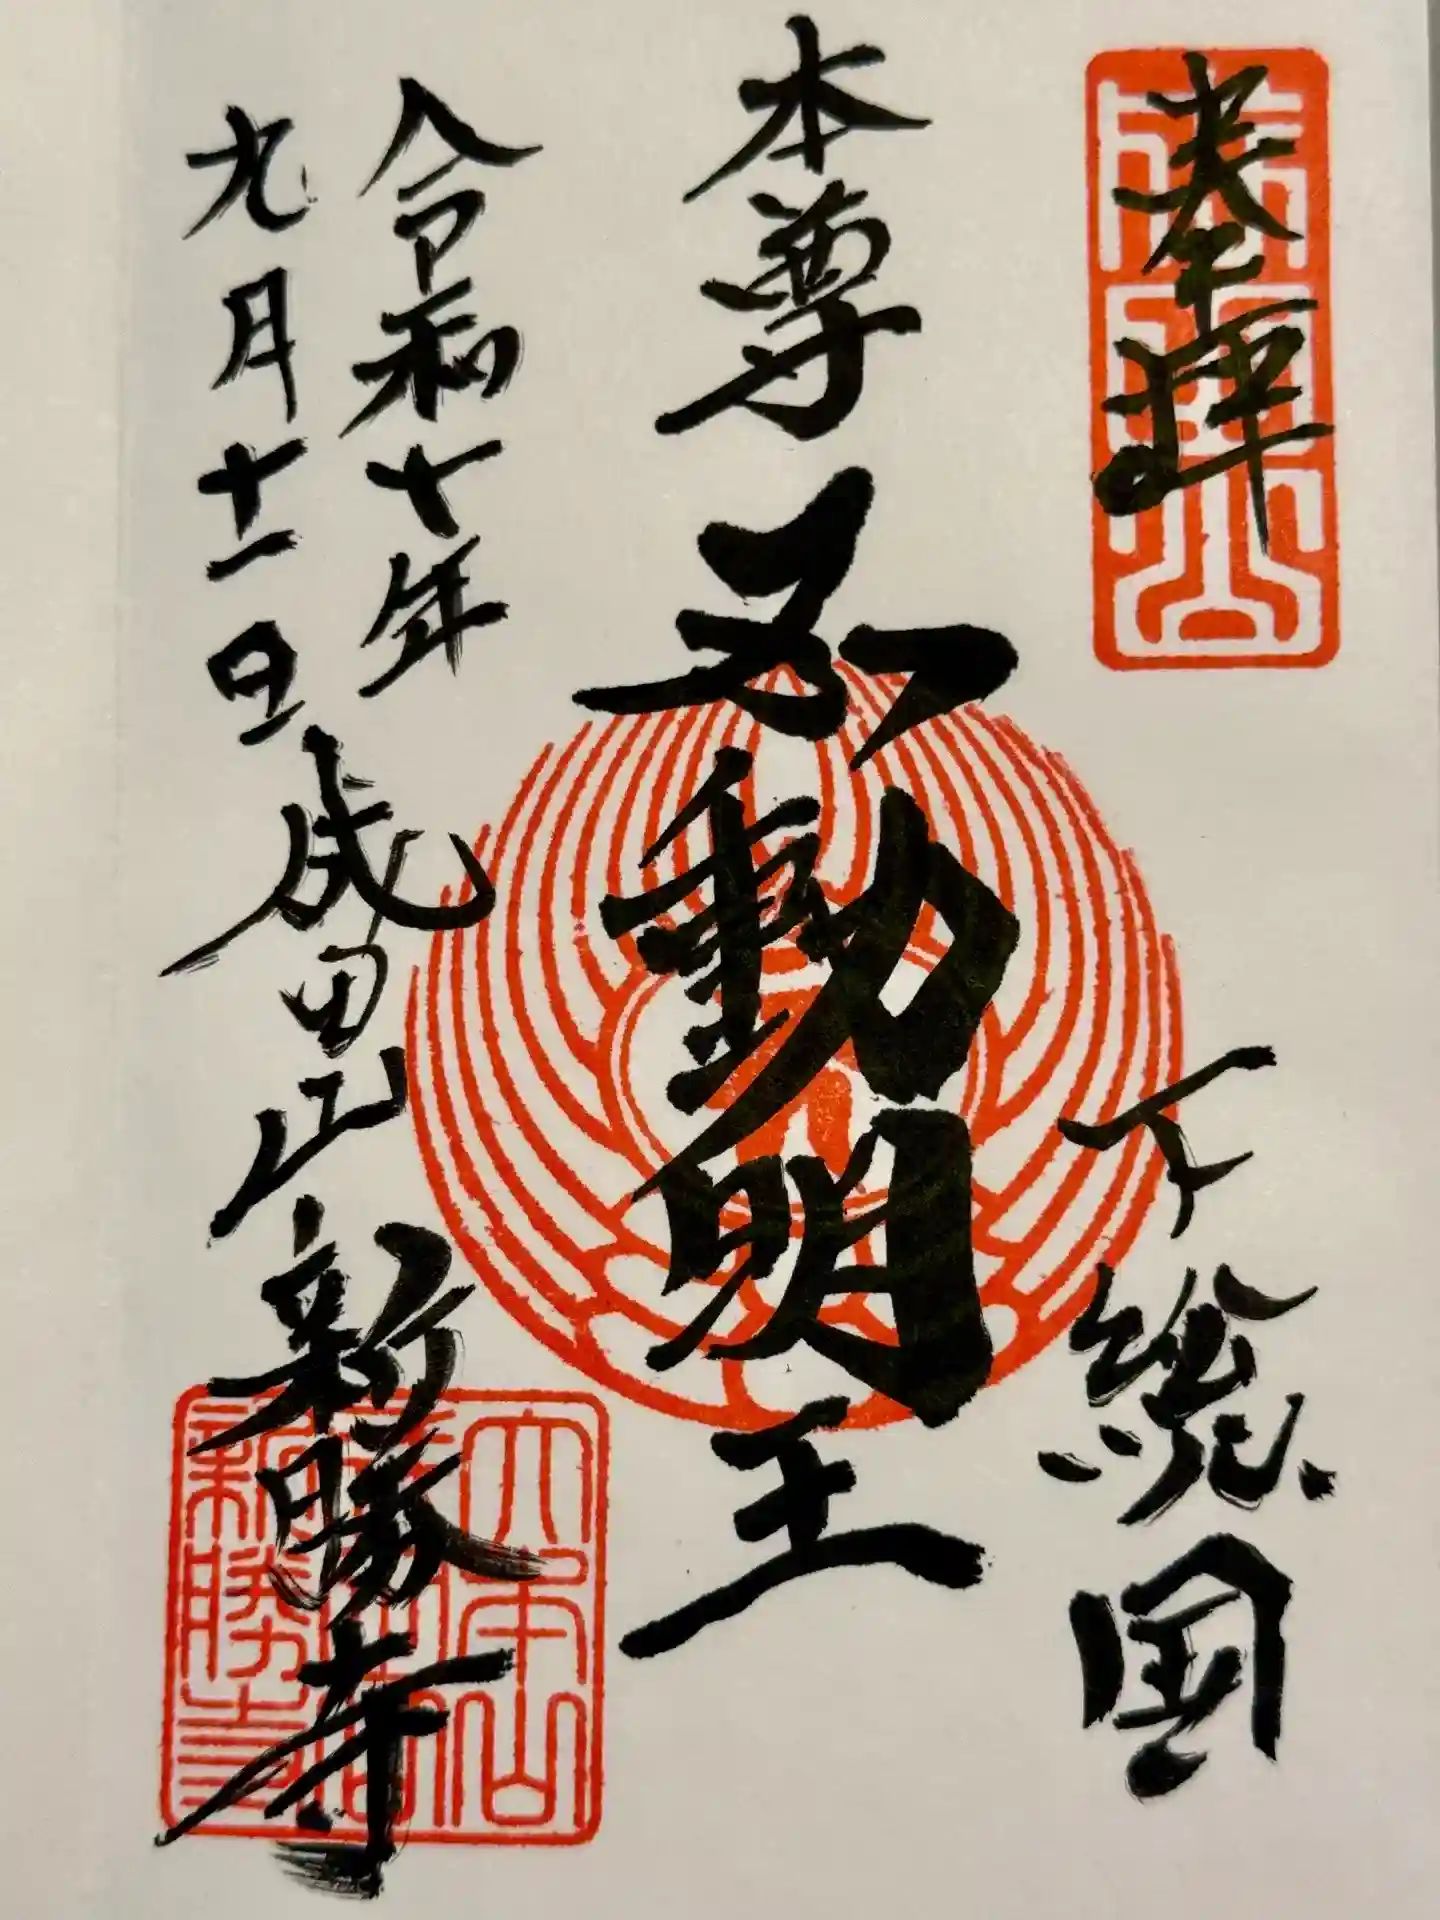 奉拝
下総国
本尊
不動明王
令和十年
九月十一日
成田山
新勝寺
大本山
新勝寺